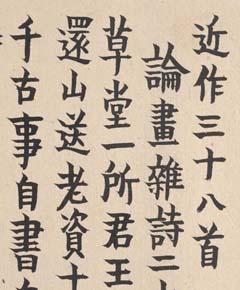 近作三十八首
論畫雜詩二十
草堂一所君王
還山送老資十
千古事自書